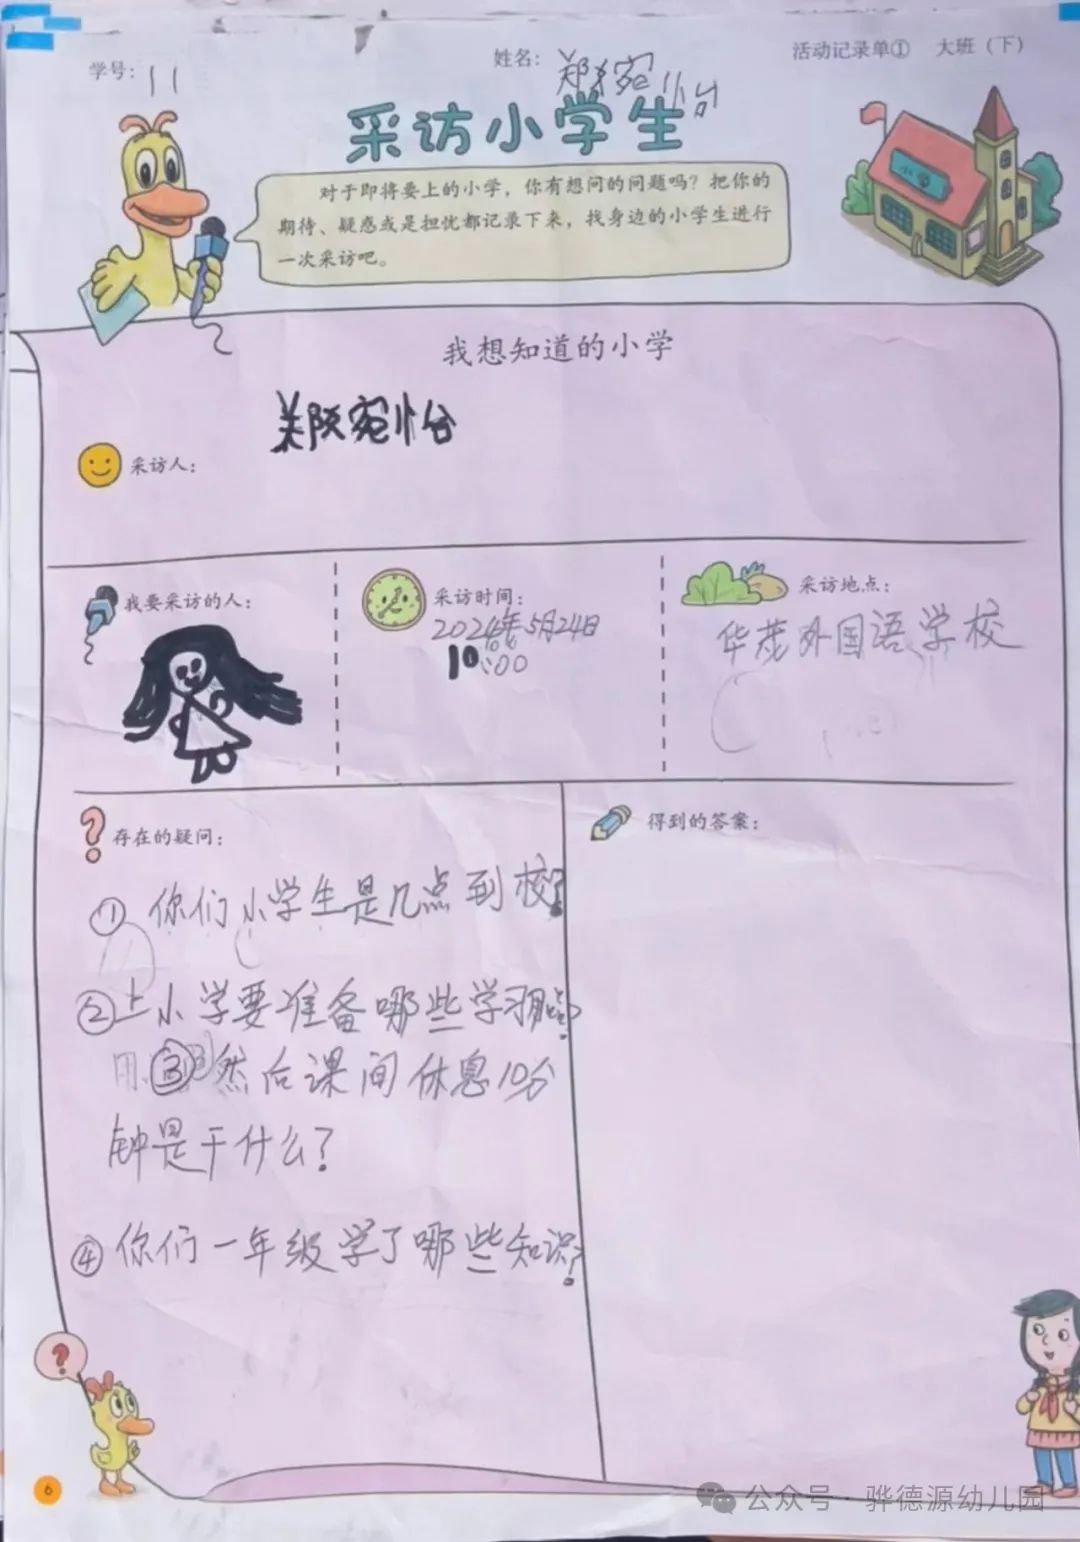 学号：11
姓名：郑宛怡
活动记录单① 大班（下）
采访小学生
小学
对于即将要上的小学，你有想问的问题吗？把你的
期待、疑惑或是担忧都记录下来，找身边的小学生进行
一次采访吧。
我想知道的小学
采访人：
郑宛怡
我要采访的人：
采访时间：
2024年5月24日
10:00
采访地点：
华茂外国语学校
存在的疑问：
①你们小学生是几点到校？
②上小学要准备哪些学习用品？
③然后课间休息10分
钟是干什么？
④你们一年级学了哪些知识？
得到的答案：
?
6
公众号·骅德源幼儿园